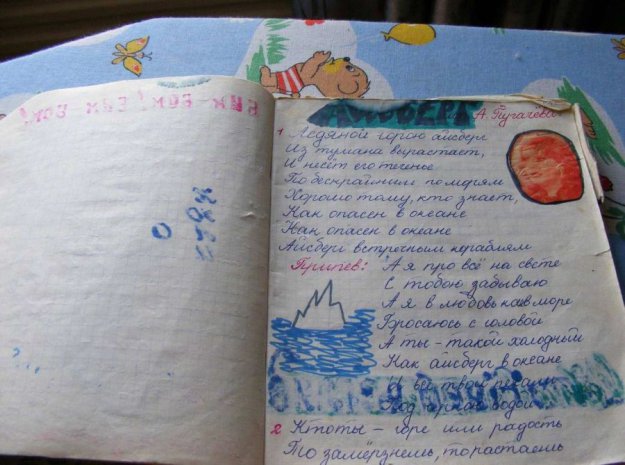 АЙСБЕРГ А. Пугачёва
1 Ледяной горою айсберг
Из тумана вырастает,
И несёт его теченье
По бескрайним по морям
Хорошо тому, кто знает,
Как опасен в океане
Как опасен в океане
Айсберг встречным кораблям
Припев: А я про всё на свете
С тобою забываю
А я в любовь как в море
Бросаюсь с головой
А ты - такой холодный
Как айсберг в океане
И все твои печали
Под чёрною водой
2 Кто ты - горе или радость
То замёрзнешь, то растаешь